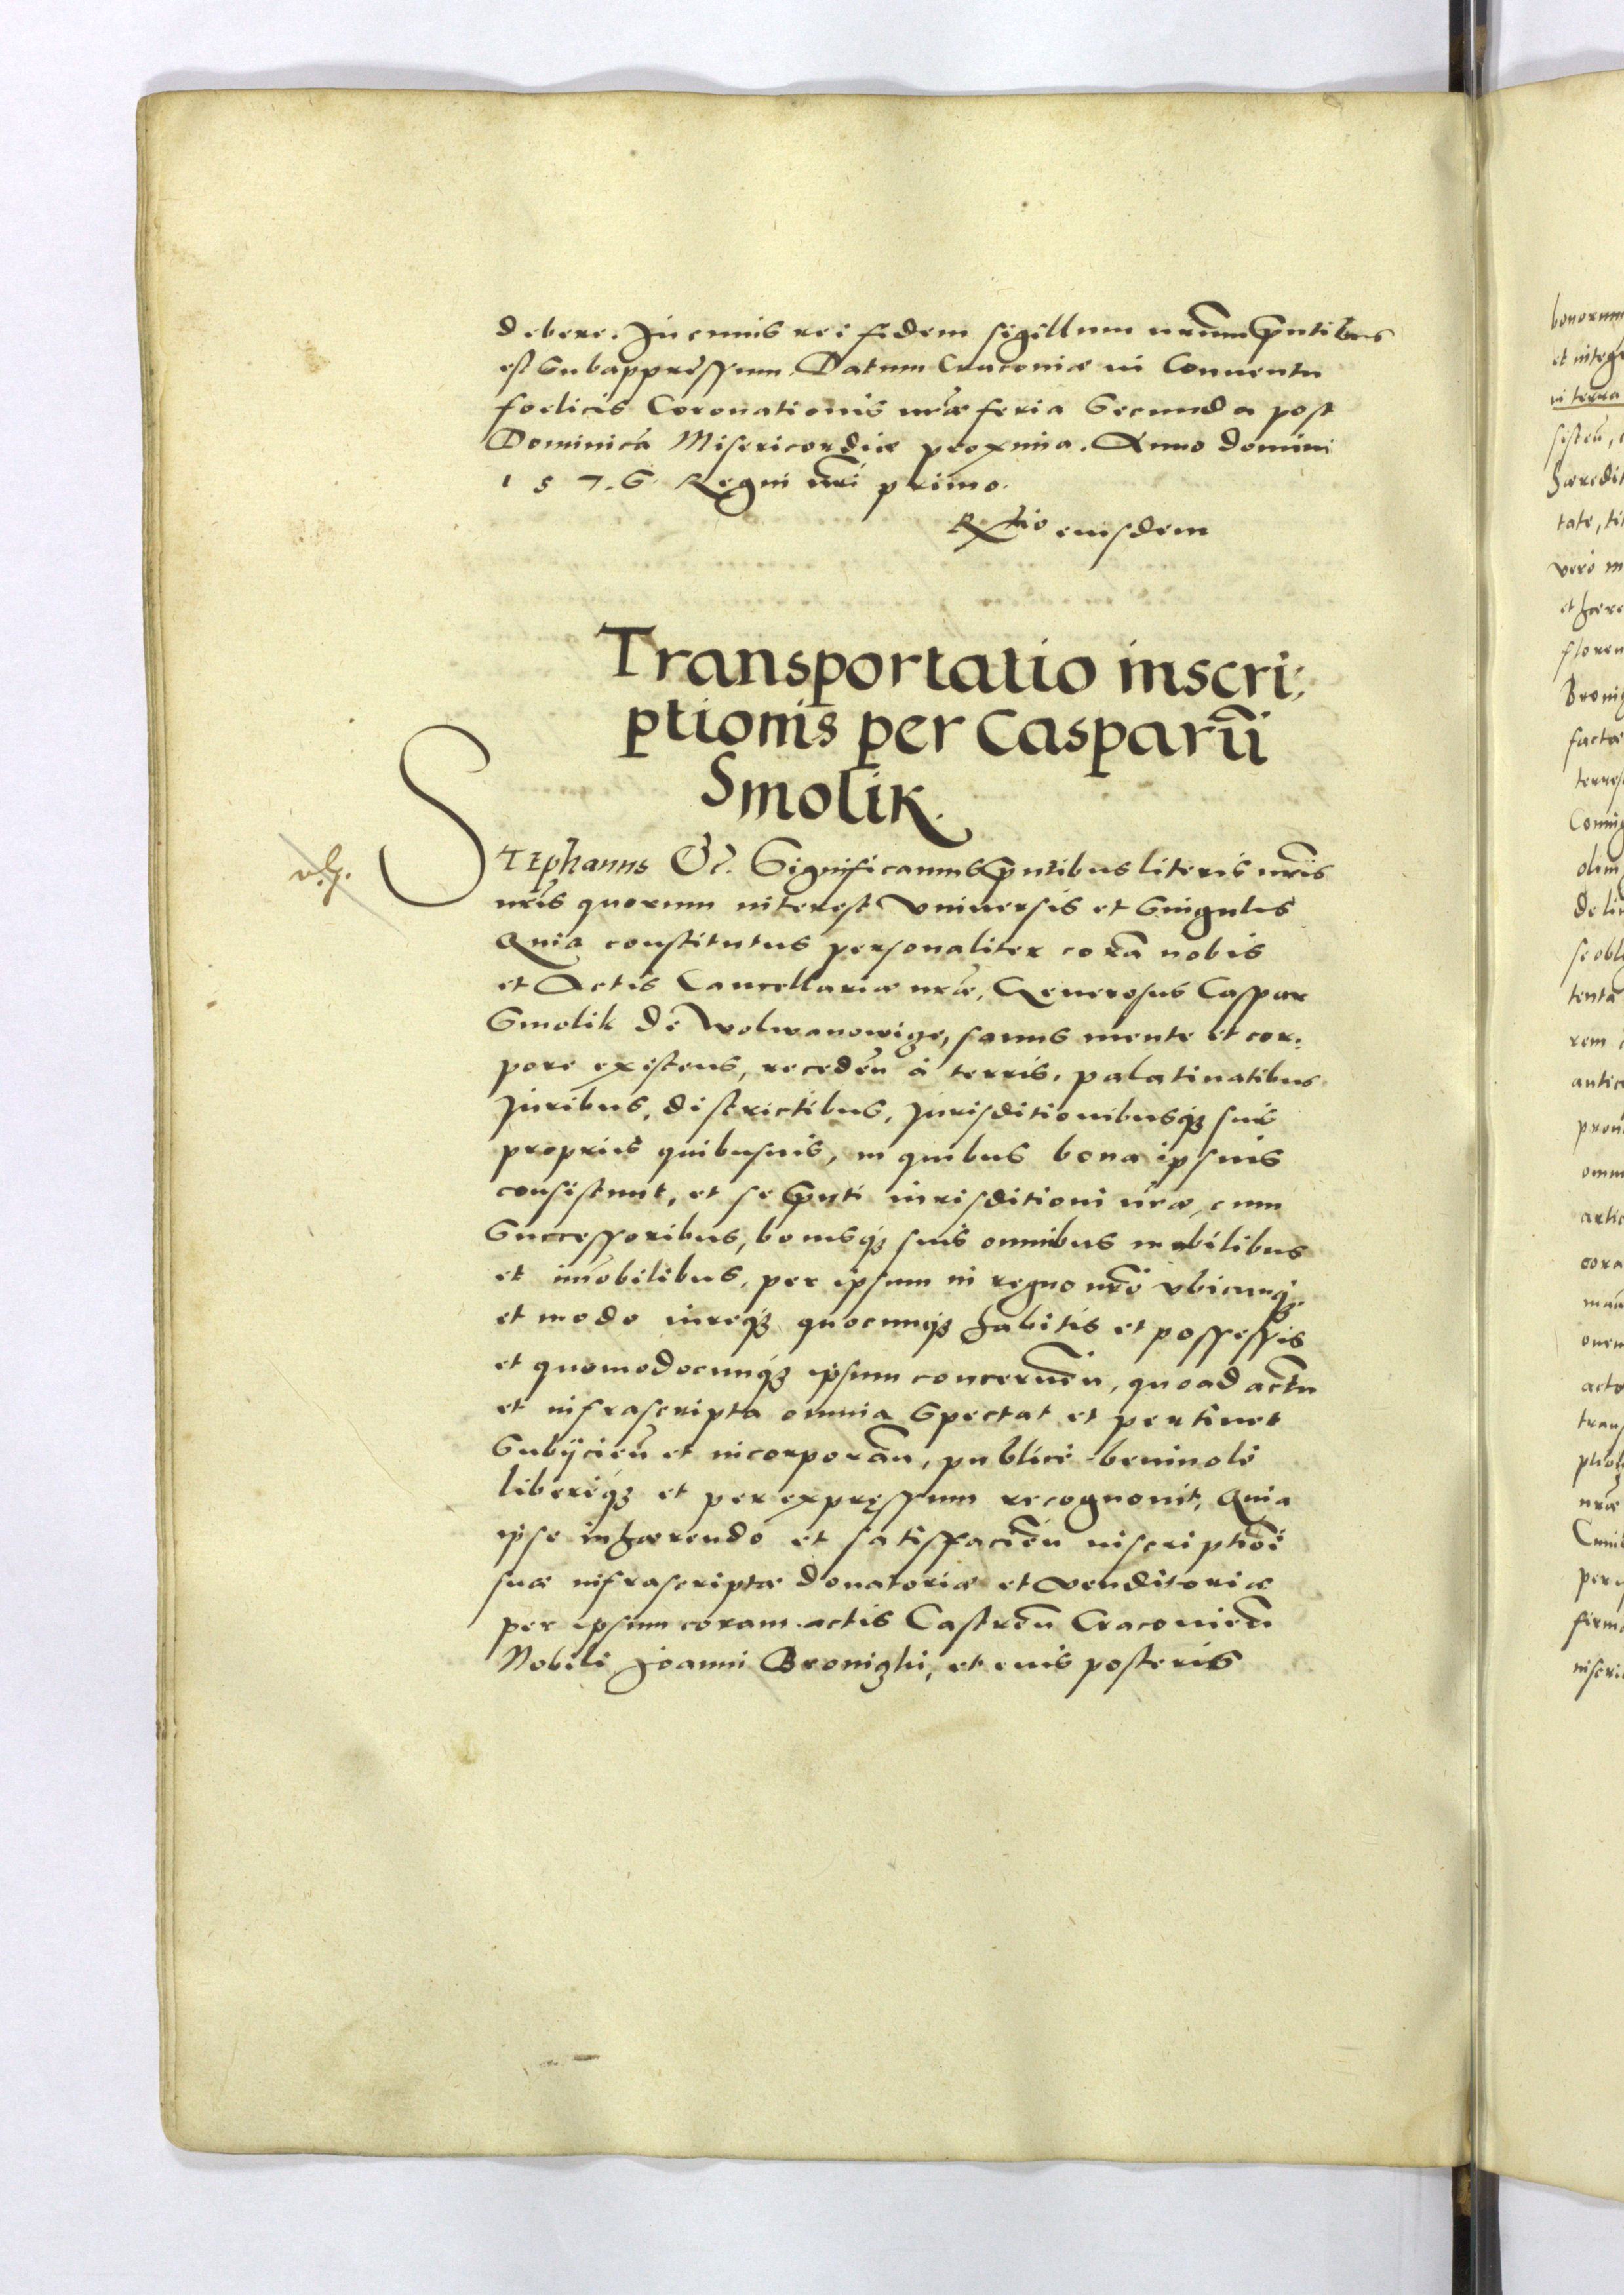 debere. In cuius rei fidem sigillum nrūm pntibus
est subappressum. Datum Craconiæ in Conuentu
foelicis Coronationis nrǣ feria secunda post
Dominicā Misericordiæ proxima. Anno domini
1576 Regni nrī primo.
Rtio eiusdem
Transportatio inscri:
ptionis per Casparū
Smolik.
STEphanus &c. Significamus pntibus literis nrīs
nrīs quorum interest vniuersis et singulis
Quia constitutus personaliter corā nobis
et Actis Cancellariæ nrǣ, Generosus Caspar
Smolik de Wolwanowige, sanus mente et cor:
pore existens, recedeñ à terris, palatinatibus
Iuribus, districtibus, Iurisditionibusqȝ suis
proprijs quibusuis, in quibus bona ipsius
consistunt, et se pnti iurisditioni nrǣ, cum
Successoribus, bonisqȝ suis omnibus mobilibus
et im̄obilibus, per ipsum in regno nrō vbicunqȝ
et modo iureqȝ quocunqȝ habitis et possessis
et quomodocunqȝ ipsum concerneñ, quoad actū
et infrascripta omnia spectat et pertinet
Subijcieñ et incorporañ, publicè beniuolè
liberèqȝ et per expręssum recognouit, Quia
ipse inhærendo et satisfacieñ inscriptiōi
suæ infrascriptæ donatoriæ et venditoriæ
per ipsum coram actis Castreñ Cracouieñ
Nobili Joanni Bronighi, et eius posteris
bonorum
et integr
in terra
sisteñ,
hæredit
tate, tit
verò m
et hære
floren
Bronig
factæ
terres
Coning
olim
de li
se obli
tentā
rem
antic
prou
omn
artic
cora
man
onem
acto
trans
ptiob
nrǣ
Cuius
per
firma
inscri